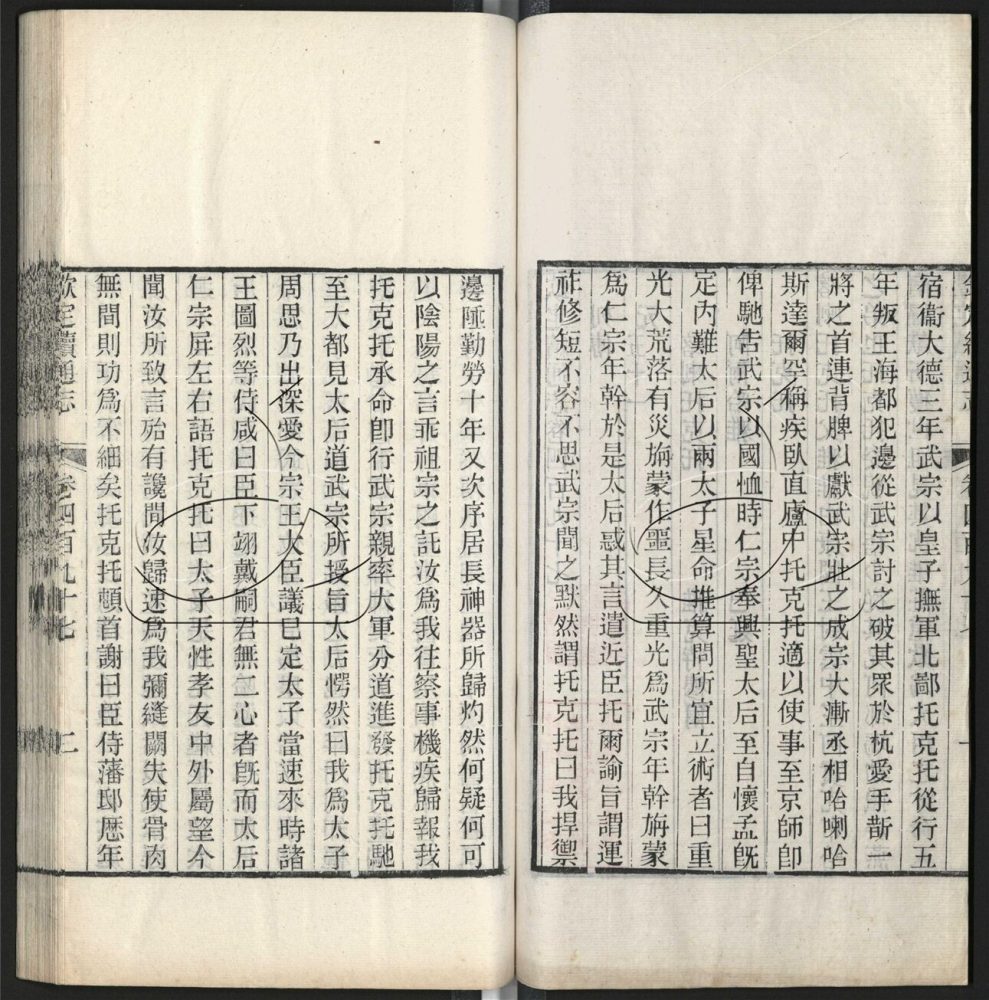 欽定續通志 卷四百九十七 一
宿衞大德三年武宗以皇子撫軍北鄙托克托從行五
年叛王海都犯邊從武宗討之破其眾於杭愛手斮一
將之首連背脾以獻武宗壯之成宗大漸丞相哈喇哈
斯達爾罕稱疾臥直廬中托克托適以使事至京師卽
俾馳告武宗以國恤時仁宗奉興聖太后至自懷孟旣
定內難太后以兩太子星命推算問所宜立術者曰重
光大荒落有災旃蒙作噩長久重光爲武宗年幹旃蒙
爲仁宗年幹於是太后惑其言遣近臣托爾諭旨謂運
祚修短不容不思武宗聞之默然謂托克托曰我捍禦
邊陲勤勞十年又次序居長神器所歸灼然何疑何可
以陰陽之言乖祖宗之託汝爲我往察事機疾歸報我
托克托承命卽行武宗親率大軍分道進發托克托馳
至大都見太后道武宗所授旨太后愕然曰我爲太子
周思乃出深愛今宗王大臣議已定太子當速來時諸
王圖烈等侍咸曰臣下翊戴嗣君無二心者旣而太后
仁宗屏左右語托克托曰太子天性孝友中外屬望今
聞汝所致言殆有讒間汝歸速爲我彌縫闕失使骨肉
無間則功爲不細矣托克托頓首謝曰臣侍藩邸歷年
欽定續通志 卷四百九十七 二